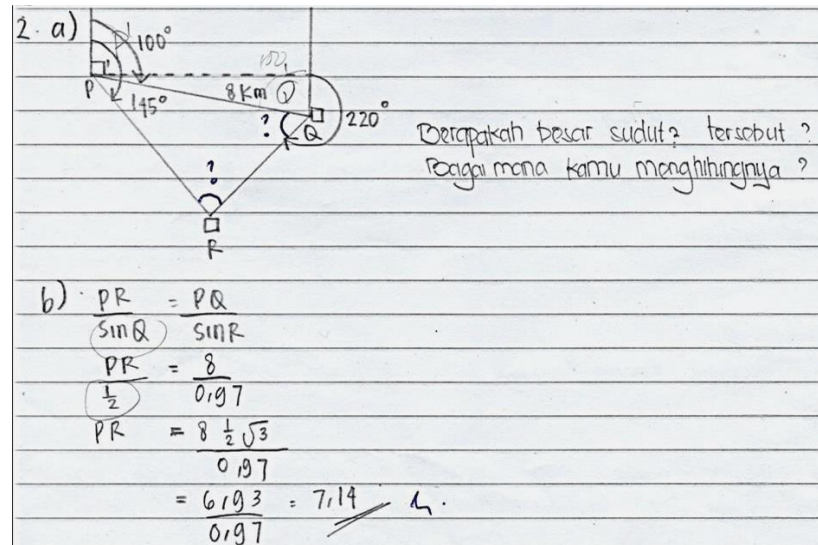 2. a)
100°
P
145°
8 Km
Q
Q
220°
?
?
R
Berapakah besar sudut? tersebut ?
Bagai mana kamu menghihingnya ?
b) PR = PQ
sin Q sin R
PR = 8
1/2 0,97
PR = 8 1/2 √3
0,97
= 6,93 = 7,14
0,97